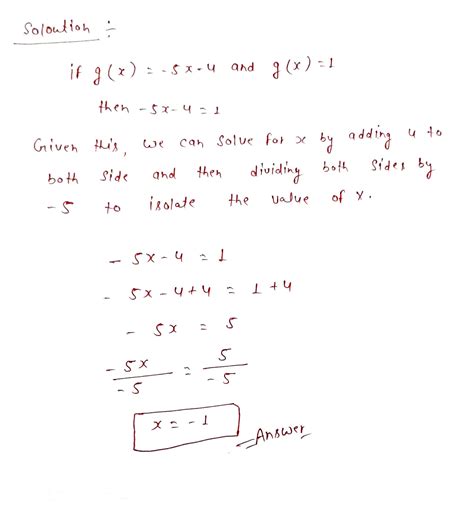 Soloution ÷
if g(x) = -5x-4 and g(x)=1
then -5x-4 = 1
Given this, we can solve for x by adding 4 to
both side and then dividing both sides by
-5 to isolate the value of x.
- 5x-4 = 1
- 5x-4+4 = 1+4
- 5x = 5
-5x/-5 = 5/-5
x = -1
Answer